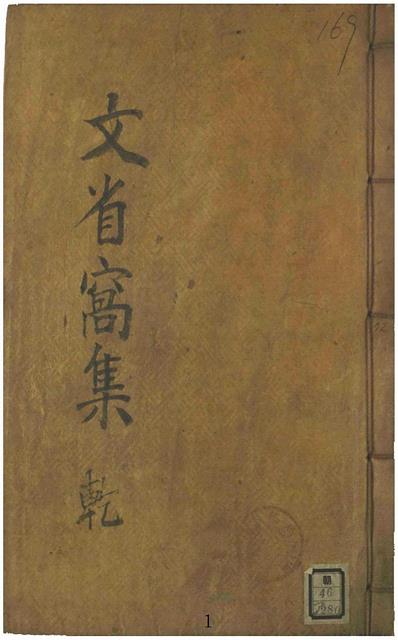 169
文省窩集 乾
朝
46
1